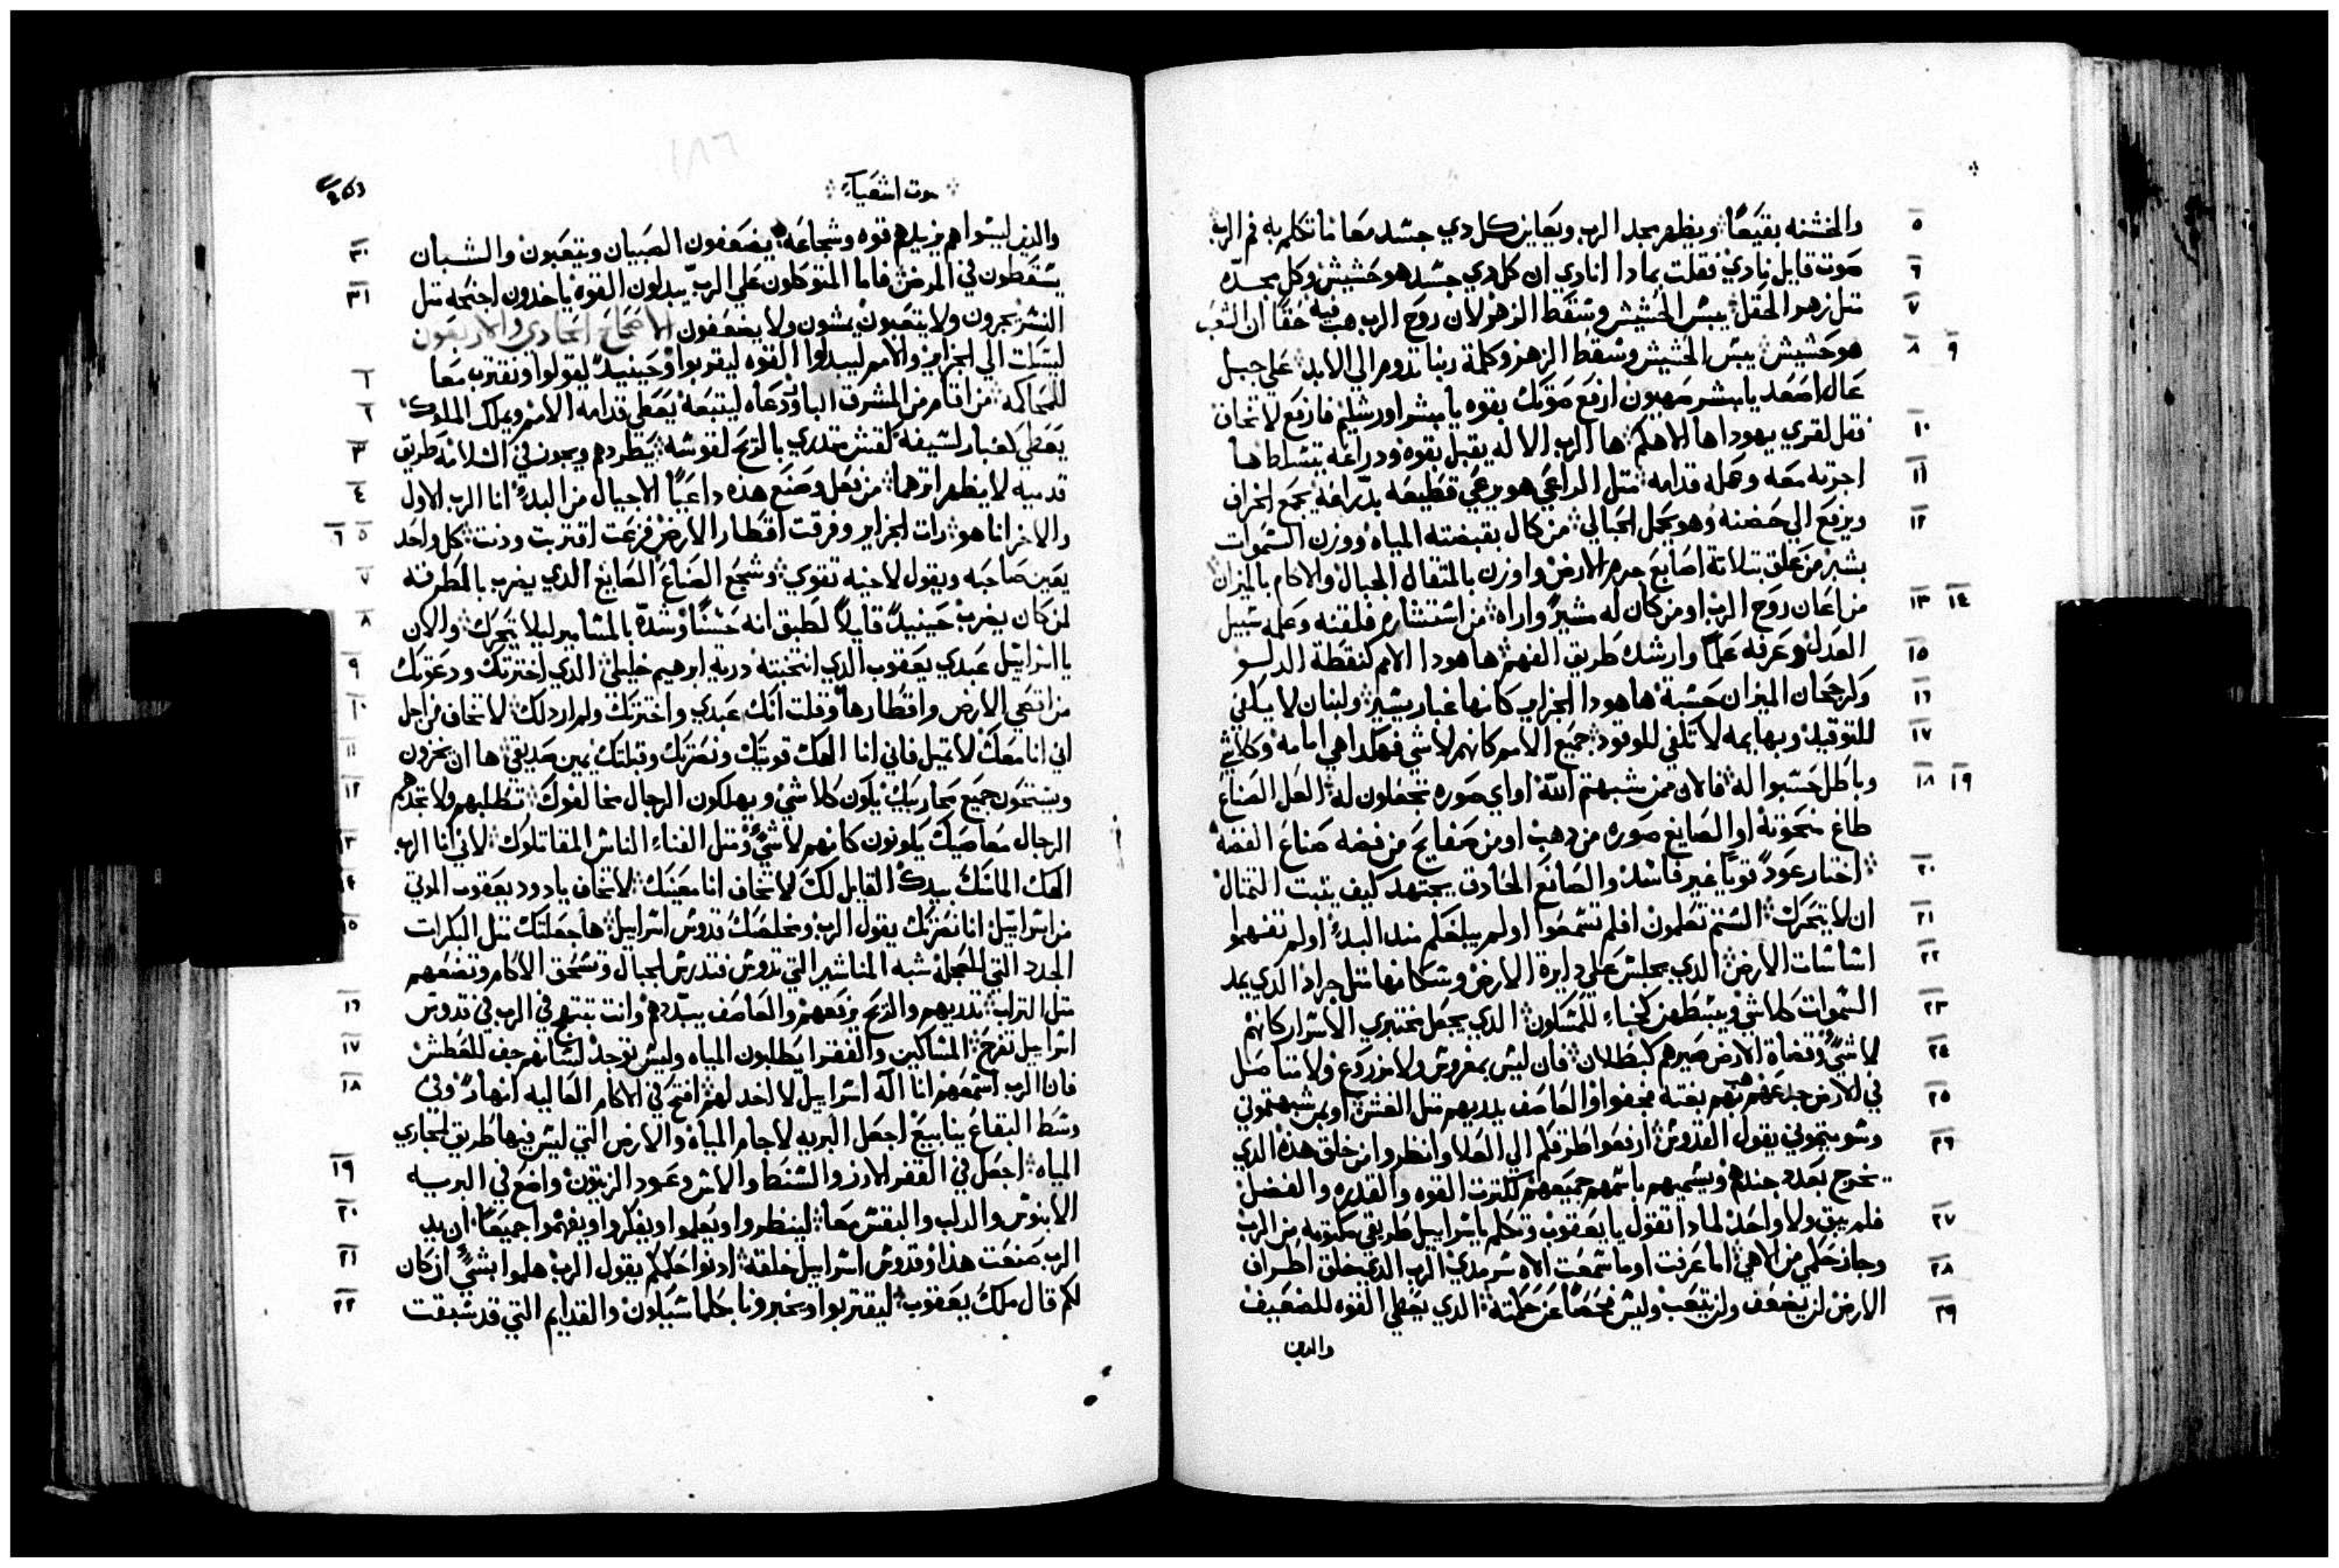 والخشنه بقيعًا ويظهر مجد الرب ويعاين كل دي جسد معا ما تكلم به فم الرب ٥
صوت قايل نادي فقلت بمادا انادي ان كل دي جسد هو حشيش وكل مجده ٦
متل زهو الحقل يبس الحشيش وسقط الزهر لان روح الرب هب فيه حقًا ان الشعب ٧
هو حشيش يبس الحشيش وسقط الزهر وكلمة ربنا تدوم الي الابد علي جبل ٨ ٩
عال اصعد يا مبشر صهيون ارفع صوتك بقوه يا مبشر اورشليم فارفع لا تخاف
فقل لقري يهودا ها الاهكم ها الرب الاله يقبل بقوه ودراعه يتسلط ها ١٠
اجرته معه وعمله قدامه متل الراعي هو يرعي قطيعه بدراعه يجمع الخراف ١١
ويرفع الي حضنه وهو يحمل الحبالي من كال بقبضته المياه ووزن السموات ١٢
بشبر من علق بتلاتة اصابع جرم الارض واوزن بالمتقال الجبال والاكام بالميزان
من اعان روح الرب او من كان له مشيرً واراه من استشاره فلقنه وعلمه سبيل ١٣ ١٤
العدل وعرفه علمًا وارشده طريق الفهم ها هودا الامم كنقطة الدلو ١٥
وكرجحان الميزان حسبة ها هودا الجزاير كانها غبار يسير ولبنان لا يكفي ١٦
للتوقيد وبهايمه لا تكفي للوقود جميع الامم كانهم لا شي فهكدا هي امامه وكلاشي ١٧
وباطل حسبوا له فالان ممن شبهتم الله او اي صوره تجعلون له العل الصناع ١٨ ١٩
صاغ منحوتة او الصايغ صوره من دهب او من صفايح من فضه صناع الفضه
اختار عودً قويًا غير فاسد والصانع الحادق يجتهد كيف يتبت التمتال ٢٠
ان لا يتحرك الستم تعلمون افلم تسمعوا اولم يبلغكم مند البدءً اولم تفهموا ٢١
اساسات الارض الدي يجلس علي دايرة الارض وسكانها متل جراد الدي يمد ٢٢
السموات كلاشي ويبسطهن كخباء للمسكون الدي يجعل مختبري الاسرار كانهم ٢٣
لا شيً وقضاة الارض صيرهم كبطلان فان ليس بمغروس ولا مزروع ولا متاصل ٢٤
في الارض جدعهم هب بهم بغته فجفوا والعاصف يدريهم متل القش او بمن شبهتموني ٢٥
وسويتموني يقول القدوس ارفعوا طرفكم الي العلا وانظروا من خلق هده الدي ٢٦
يخرج بعدد جندهم ويسميهم باسمهم جميعهم لكترت القوه والقدره والفضل
فلم يبق ولا واحد لمادا تقول يا يعقوب وتكلم يا اسراييل طريقي مكتومه من الرب ٢٧
وجاز حكمي من الاهي اما عرفت او ما سمعت الاه سرمدي الرب الدي خلق اطراف ٢٨
الارض لن يضعف ولن يتعب وليس فحصًا عن حكمته الدي يعطي القوه للضعيف ٢٩
والدين
صوت اشعياء
والدين ليسوا هم يزيدهم قوه وشجاعه يضعفون الصبيان ويتعبون والشبان ٣٠
يسقطون في المرض فاما المتوكلون علي الرب يبدلون القوه ياخدون اجنحه متل ٣١
النسر يجرون ولا يتعبون يمشون ولا يضعفون الاصحاح الحادي والاربعون
ليسكت الي الجزاير والامم ليبدلوا القوه ليقربوا وحينيدً ليقولوا ونقترب معا ١
للمحاكمه من اقام من المشرق البار ودعاه ليتبعه يعطي قدامه الامم ويملك الملوك ٢
يعطي كغبار لسيفه كقش متدري بالريح لقوسه يطردهم ويجوز في السلامه طريق ٣
قدميه لا يظهر اترهما من فعل وصنع هده داعيًا الاجيال من البدءً انا الرب الاول ٤
والاخر انا هو رات الجزاير وفرقت اقطار الارض فزعت اقتربت ودنت كل واحد ٥ ٦
يعين صاحبه ويقول لاخيه تقوي وشجع الصناع الصايغ الدي يضرب بالمطرقه ٧
لمن كان يضرب حينيدً قايلاً لطبق انه حسنًا وشده بالمسامير ليلا يتحرك والان ٨
يا اسراييل عبدي يعقوب الدي انتخبته درية ابرهيم خليلي الدي اخترتك ودعوتك ٩
من اقصي الارض واقطارها وقلت انك عبدي واخترتك ولم اردلك لا تخاف من اجل ١٠
اني انا معك لا تميل فاني انا الهك قويتك ونصرتك وقبلتك يمين صديقي ها ان يخزون ١١
ويستحون جميع محاربيك يكون كلا شي ويهلكون الرجال مخالفوك تطلبهم ولا تجدهم ١٢
الرجال معاصيك يكونون كانهم لا شيً ومتل الفناء الناس المقاتلوك لاني انا الرب ١٣
الهك الماسك بيدك القايل لك لا تخاف انا معينك لا تخاف يا دود يعقوب الموتي ١٤
من اسراييل انا نصرتك يقول الرب ومخلصك قدوس اسراييل ها جعلتك متل البكرات ١٥
الجدد التي للعجلة شبه المناشير التي تدوس فتدرس الجبال وتسحق الاكام وتضعهم
متل التراب تدريهم والريح يرفعهم والعاصف يبددهم وانت تبتهج في الرب في قدوس ١٦
اسراييل تفرح المساكين والفقرا يطلبون المياه وليس توجد لسانهم جف للعطش ١٧
فان الرب اسمعهم انا اله اسراييل لا اخدلهم افتح في الاكام العاليه انهارً وفي ١٨
وسط البقاع ينابيع اجعل البريه لاجام المياه والارض التي ليس فيها طريق لمجاري
المياه اجعل في القفر الارز والسنط والاس وعود الزيتون واضع في البريه ١٩
الابنوس والدلب والبقس معا لينظروا ويعلموا ويفكروا ويفهموا جميعًا ان يد ٢٠
الرب صنعت هدا وقدوس اسراييل خلقه ادنوا حكمكم يقول الرب هلموا بشيً ان كان ٢١
لكم قال ملك يعقوب ليقتربوا ويخبرونا بكلما سيكون والقدايم التي قد سبقت ٢٢